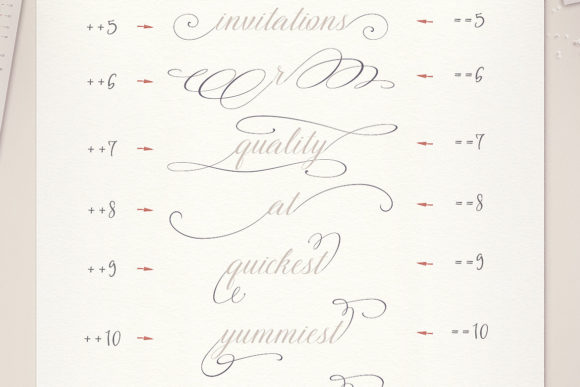 ++5 invitations ==5
++6 r ==6
++7 quality ==7
++8 at ==8
++9 quickest ==9
++10 yummiest ==10